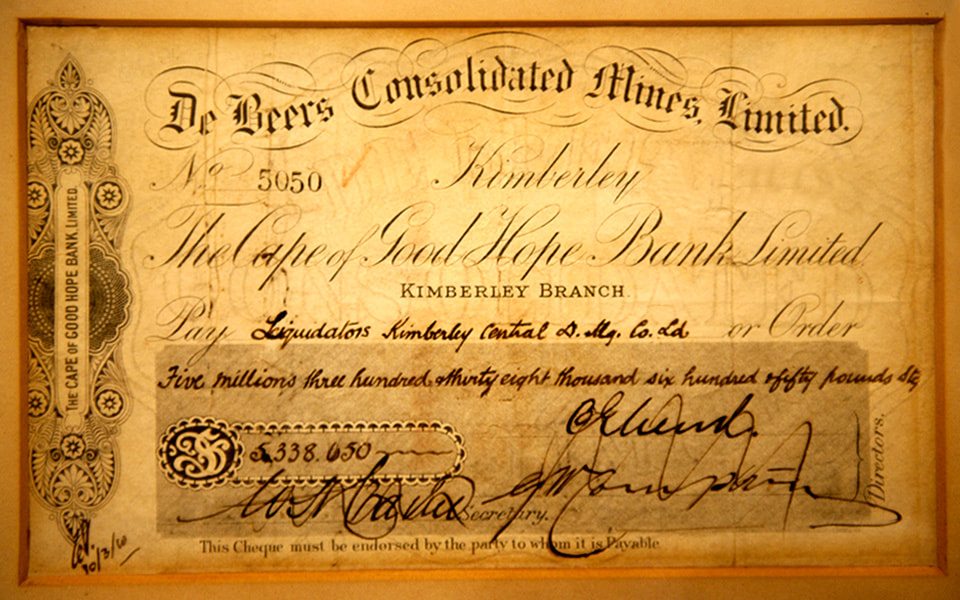 De Beers Consolidated Mines, Limited.
No 5050 Kimberley
The Cape of Good Hope Bank Limited
KIMBERLEY BRANCH.
Pay Liquidators Kimberley Central D. Mg. Co. Ld or Order
Five millions three hundred & thirty eight thousand six hundred & fifty pounds Stg
5,338,650
Directors.
Secretary.
This Cheque must be endorsed by the party to whom it is Payable.
THE CAPE OF GOOD HOPE BANK, LIMITED.